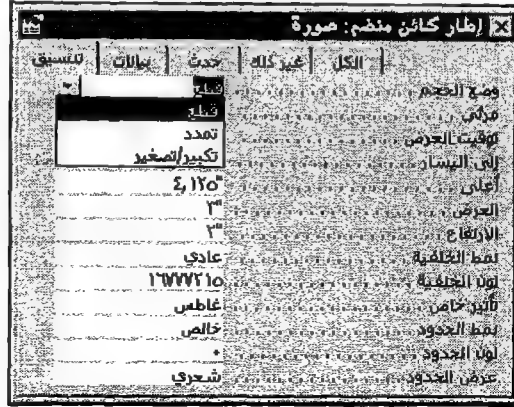 إطار كائن منضم: صورة
تنسيق بيانات حدث غير ذلك الكل
وضع الحجم قطع
مرئي قطع
توقيت العرض تمدد
إلى اليسار تكبير/تصغير
أعلى ٤,١٢٥"
العرض ٣"
الارتفاع ٢"
نمط الخلفية عادي
لون الخلفية ١٦٧٧٧٢١٥
تأثير خاص غاطس
نمط الحدود خالص
لون الحدود ٠
عرض الحدود شعري